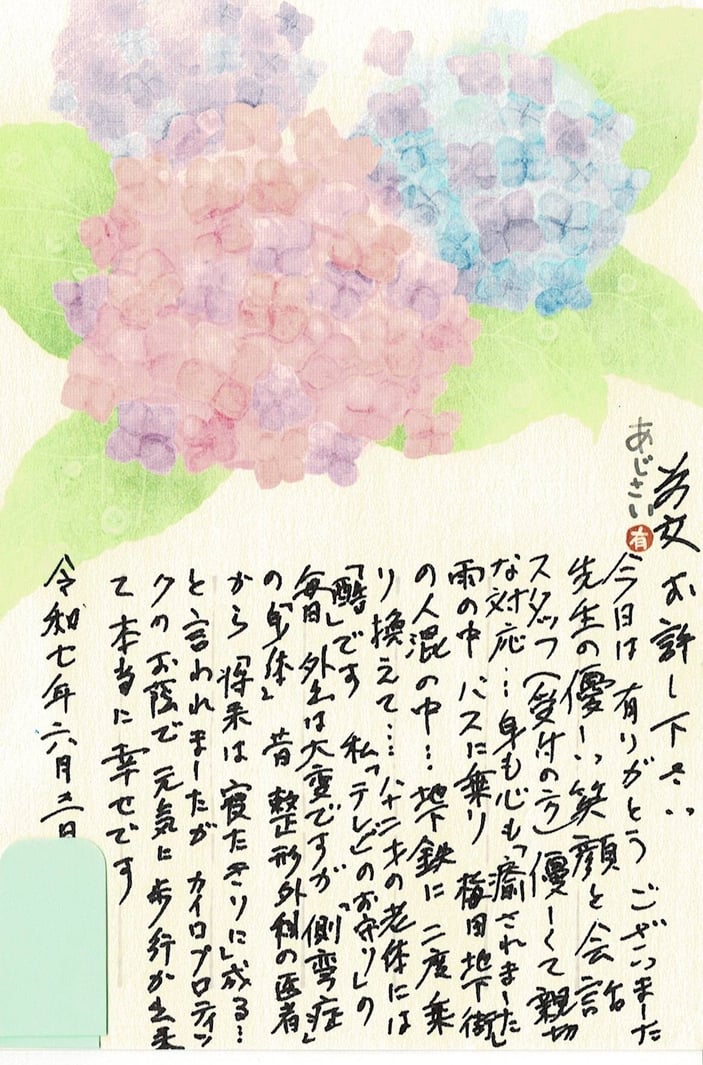 あじさい
有
為文お許し下さい
今日は有りがとうございました
先生の優しい笑顔と会話
スタッフ(受付の方)優しくて親切
な対応…身も心も「癒されました」
雨の中バスに乗り 梅田地下街
の人混の中…地下鉄に二度乗
り換えて…八十二才の老体には
「酷」です 私「テレビ」のお守り」の
毎日 外出は大変ですが「側弯症」
の「身体」 昔 整形外科の医者
から「将来は寝たきりに」成る…
と言われましたが カイロプロティッ
クのお蔭で元気に歩行が出来
て本当に幸せです
令和七年六月三日